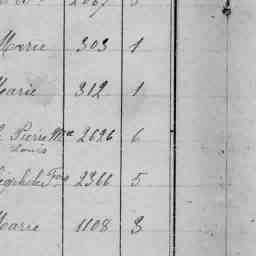 Marie 303 1
Marie 312 1
Pierre Mce 2626 6
Louis
2366 5
Marie 1108 3